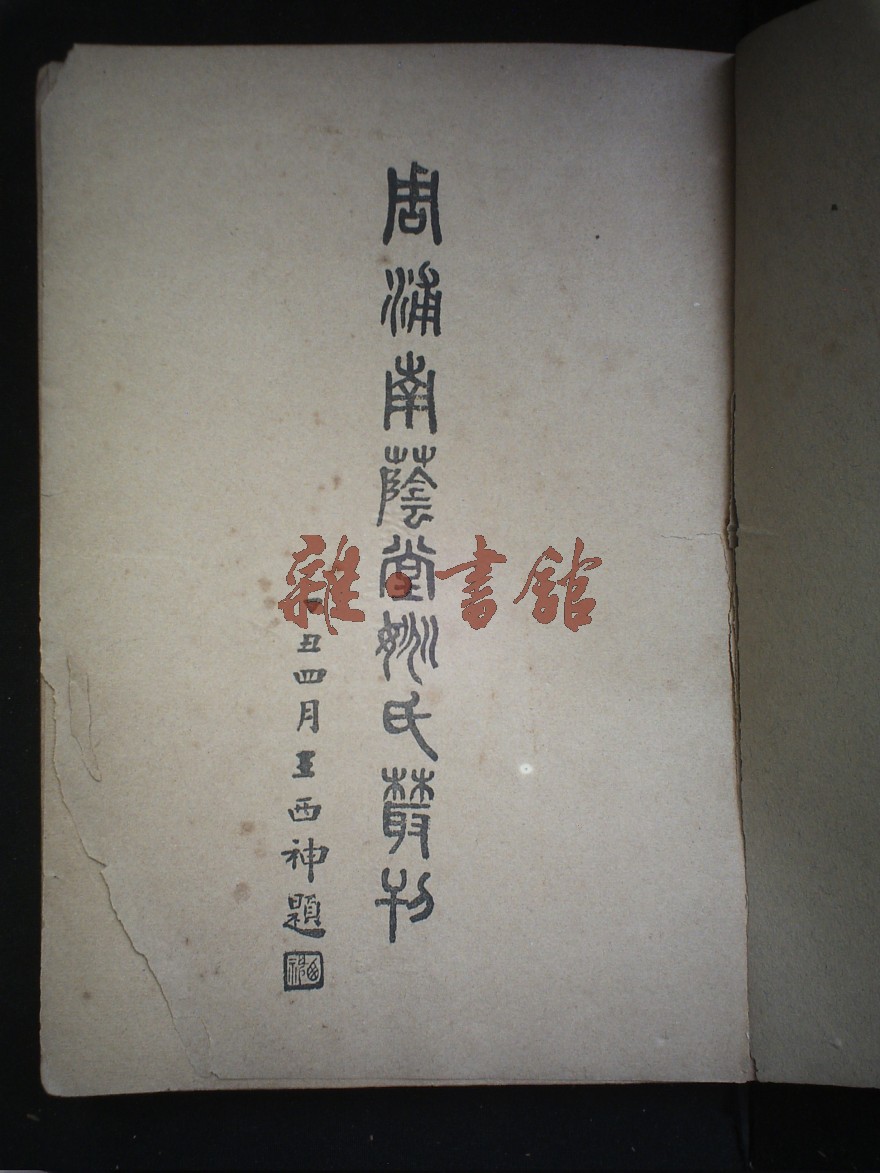 周浦南蔭堂姚氏叢刊
丑四月王西神題
西神
雜·書館